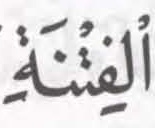 اْلفِتْنَةِ